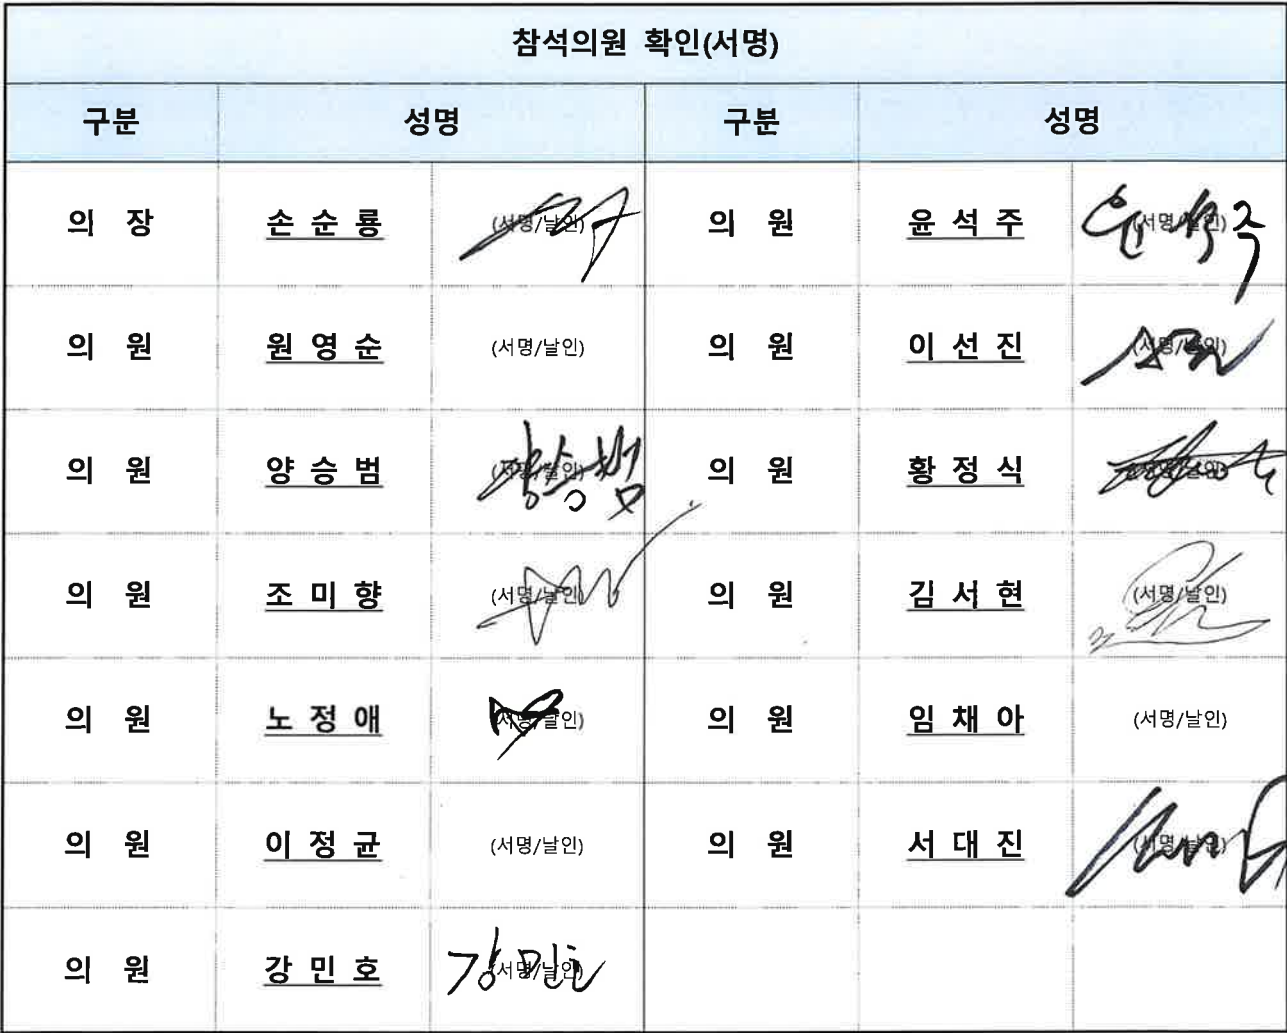 참석의원 확인(서명)
구분 성명 구분 성명
의 장 손 순 룡 (서명/날인) 의 원 윤 석 주 (서명/날인) 윤석주
의 원 원 영 순 (서명/날인) 의 원 이 선 진 (서명/날인)
의 원 양 승 범 (서명/날인) 양승범 의 원 황 정 식 (서명/날인)
의 원 조 미 향 (서명/날인) 의 원 김 서 현 (서명/날인)
의 원 노 정 애 (서명/날인) 의 원 임 채 아 (서명/날인)
의 원 이 정 균 (서명/날인) 의 원 서 대 진 (서명/날인)
의 원 강 민 호 (서명/날인) 강민호